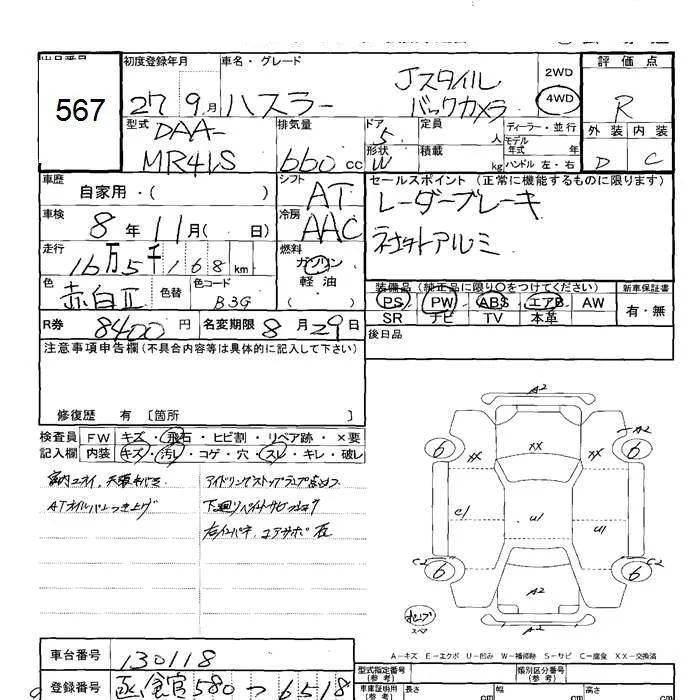 出品番号
567
初度登録年月
27 9月
車名・グレード
ハスラー
Jスタイル
バックカメラ
2WD
4WD
評価点
R
外装 内装
D C
型式
DAA-
MR41S
排気量
660 cc
ドア
5
形状
W
定員
人
積載
kg
ディーラー・並行
モデル
年式 年
ハンドル 左・右
車歴
自家用・( )
シフト
AT
セールスポイント (正常に機能するものに限ります)
レーダーブレーキ
社外アルミ
車検
8年 11月( 日)
冷房
AAC
走行
16万5千168km
燃料
ガソリン
軽油
( )
色
赤白Ⅱ
色替
色コード
B3G
装備品 (純正品に限り○をつけてください)
新車保証書
PS PW ABS エアB AW
SR ナビ TV 本革
有・無
R券
8400円
名変期限
8月29日
後日品
注意事項申告欄 (不具合内容等は具体的に記入して下さい)
修復歴 有 〔箇所 〕
検査員
記入欄
FW キズ・飛石・ヒビ割・リペア跡・×要
内装 キズ・汚レ・コゲ・穴・スレ・キレ・破レ
ATオイルパンつき上げ
A2
6 6
A2
XX
XX XX
C1
U1
U1
C2 C2
6 6
A2
A2
スペア
A-キズ E-エクボ U-凹み W-補修跡 S-サビ C-腐食 XX-交換済
車台番号
130118
登録番号
580 つ 6518
型式指定番号
(参考)
類別区分番号
(参考)
車庫証明用
(参考)
長さ
cm
幅
cm
高さ
cm